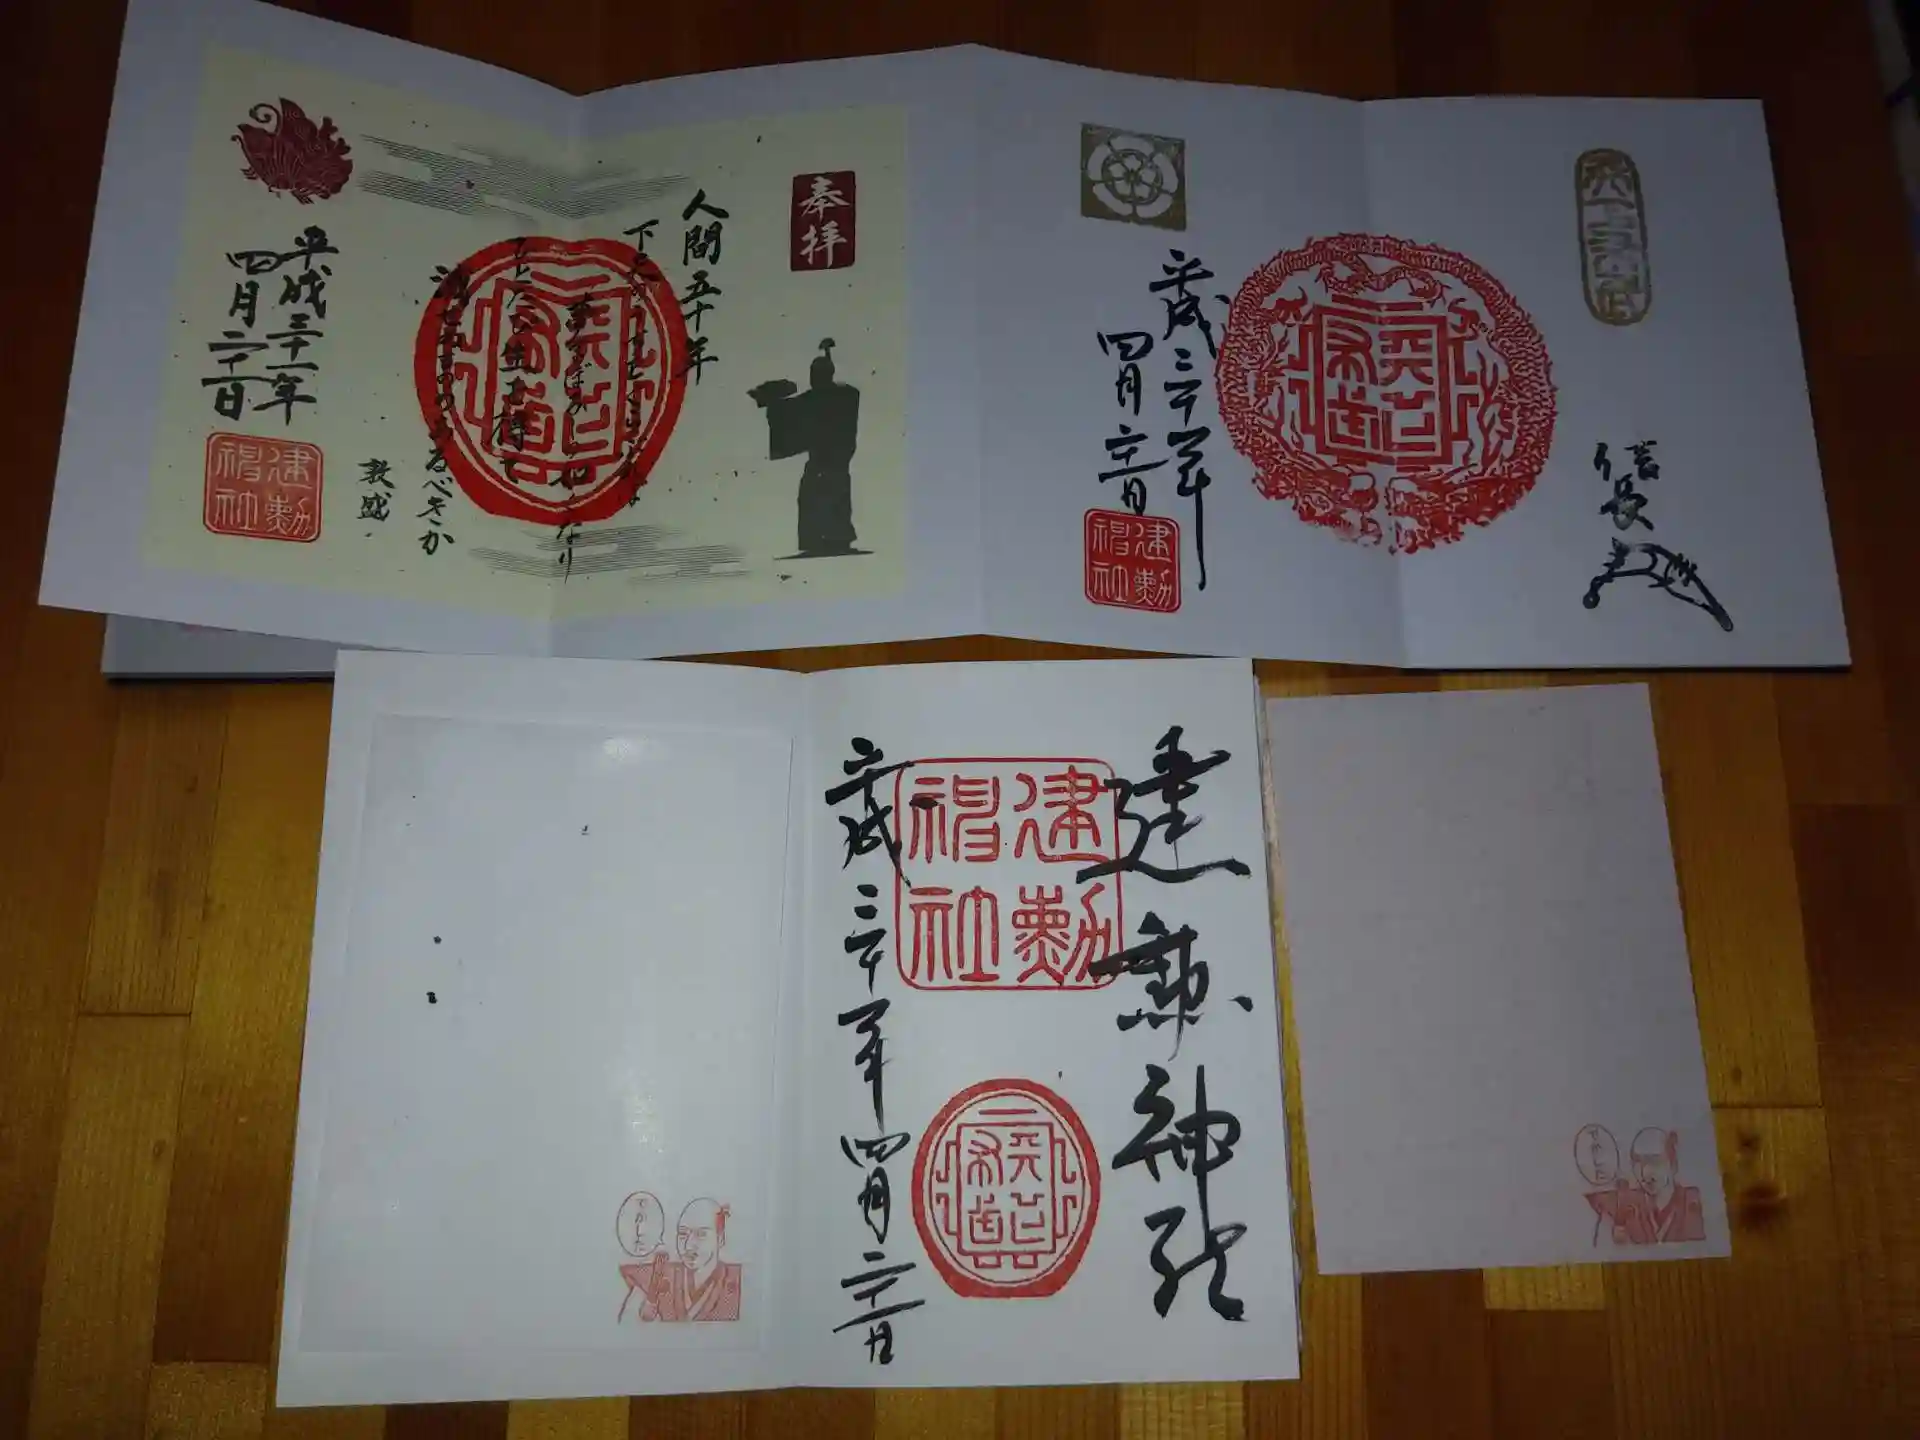 奉拝
人間五十年
下天のうちをくらぶれば
夢まぼろしの如くなり
ひとたび生を得て
滅せぬもののあるべきか
敦盛
平成三十一年
四月二十一日
建勲神社
天下布武
天下布武
信長
天下布武
平成三十一年
四月二十一日
建勲神社
建勲神社
建勲神社
天下布武
平成三十一年四月二十一日
でかした
でかした